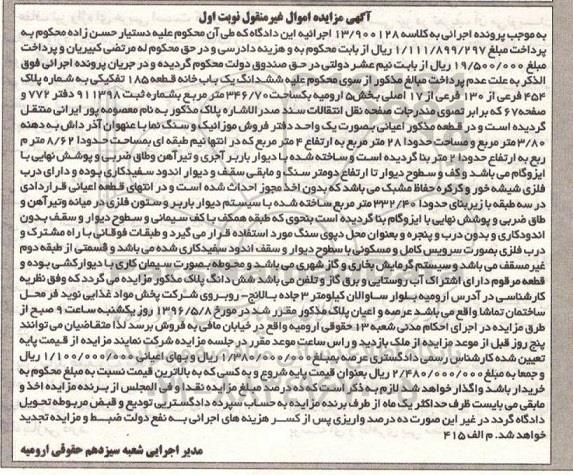 آگهی مزایده اموال غیرمنقول نوبت اول
به موجب پرونده اجرائی به کلاسه ۱۳/۹۰۰۱۲۸ اجرائیه این دادگاه که طی آن محکوم علیه دستیار حسن زاده محکوم به
پرداخت مبلغ ۱/۱۱۱/۸۹۹/۲۹۷ ریال از بابت محکوم به و هزینه دادرسی و در حق محکوم له مرتضی کبیریان و پرداخت
مبلغ ۱۹/۵۰۰/۰۰۰ ریال از بابت نیم عشر دولتی در حق صندوق دولت محکوم گردیده و در جریان پرونده اجرائی فوق
الذکر به علت عدم پرداخت مبالغ مذکور از سوی محکوم علیه ششدانگ یک باب خانه قطعه ۱۸۵ تفکیکی به شماره پلاک
۴۵۴ فرعی از ۱۳۰ فرعی از ۱۷ اصلی بخش ۵ ارومیه بکساحت ۳۴۶/۷۰ متر مربع بشماره ثبت ۹۱۱۳۹۸ دفتر ۷۷۲ و
صفحه ۶۷ که برابر تصوی مندرجات صفحه نقل انتقالات سند صدرالاشاره پلاک مذکور به نام معصومه پور ایرانی منتقل
گردیده است و در قطعه مذکور اعیانی بصورت یک واحد دفتر فروش موزائیک و سنگ نما با عنهوان آذر داش به دهنه
۳/۸۰ متر مربع و مساحت حدودا ۲۸ متر مربع به ارتفاع ۴ متر مربع که در انتها نیم طبقه ای بمساحت حدودا ۸/۶۲ متر م
ربع به ارتفاع حدودا ۲ متر بنا گردیده است و ساخته شده با دیوار باربر آجری و تیرآهن وطاق ضربی و پوشش نهایی با
ایزوگام می باشد و کف و سطوح دیوار تا ارتفاع دومتر سنگ و مابقی سقف و دیوار اندود سفیدکاری بوده و دارای درب
فلزی شیشه خور و کرکره حفاظ مشبک می باشد که بدون اخذ مجوز احداث شده است و در انتهای قطعه اعیانی قراردادی
در سه طبقه با زیربنای حدودا ۳۳۲/۴۰ متر مربع ساخته شده با سیستم دیوار باربر و ستون فلزی در میانه وتیرآهن و
طاق ضربی و پوشش نهایی با ایزوگام بنا گردیده است بنحوی که طبقه همکف با کف سیمانی و سطوح دیوار و سقف بدون
اندودکاری و بدون درب و پنجره و بعنوان محل دپوی سنگ مورد استفاده قرار می گیرد و طبقات فوقانی با راه مشترک و
درب فلزی بصورت سرویس کامل و مسکونی با سطوح دیوار و سقف اندود سفیدکاری شده می باشد و قسمتی از طبقه دوم
غیرمسقف می باشد و سیستم گرمایش بخاری و گاز شهری می باشد و محوطه بصورت سیمان کاری با دیوارکشی بوده و
قطعه مرقوم دارای اشتراک آب روستایی و برق گاز و تلفن می باشد شش دانگ پلاک مذکور مزایده می گردد که وفق نظریه
کارشناسی در آدرس ارومیه بلوار ساوالان کیلومتر ۳ جاده بالانج- روبروی شرکت پخش مواد غذایی نوید فر محل
ساختمان تماشا واقع می باشد عرصه و اعیان پلاک مذکور مقرر شد در مورخ ۱۳۹۲/۵/۸ روز یکشنبه ساعت ۹ صبح از
طرق مزایده در اجرای احکام مدنی شعبه ۱۳ حقوقی ارومیه واقع در خیابان مافی به فروش برسد لذا متقاضیان می توانند
پنج روز قبل از موعد مزایده از ملک بازدید و راس ساعت موعد مقرر در جلسه مزایده شرکت نمایند مزایده از قیمت پایه
تعیین شده کارشناس رسمی دادگستری عرصه بمبلغ ۱/۳۸۰/۰۰۰/۰۰۰ ریال و بهای اعیانی ۱/۱۰۰/۰۰۰/۰۰۰ ریال
و جمعا به مبلغ ۲/۴۸۰/۰۰۰/۰۰۰ ریال بعنوان قیمت پایه شروع و به کسی که به بالاترین قیمت نسبت به مبلغ محکوم به
خریدار باشد واگذار خواهد شد لازم به ذکر است که ده درصد مبلغ مزایده نقدا و فی المجلس از برنده مزایده اخذ و
مابقی می بایست ظرف حداکثر یک ماه از طرف برنده مزایده به حساب سپرده دادگستری تودیع و قبض مربوطه تحویل
دادگاه گردد در غیر این صورت ده درصد واریزی پس از کسر هزینه های اجرائی به نفع دولت ضبط و مزایده تجدید
خواهد شد. م الف ۴۱۵
مدیر اجرایی شعبه سیزدهم حقوقی ارومیه